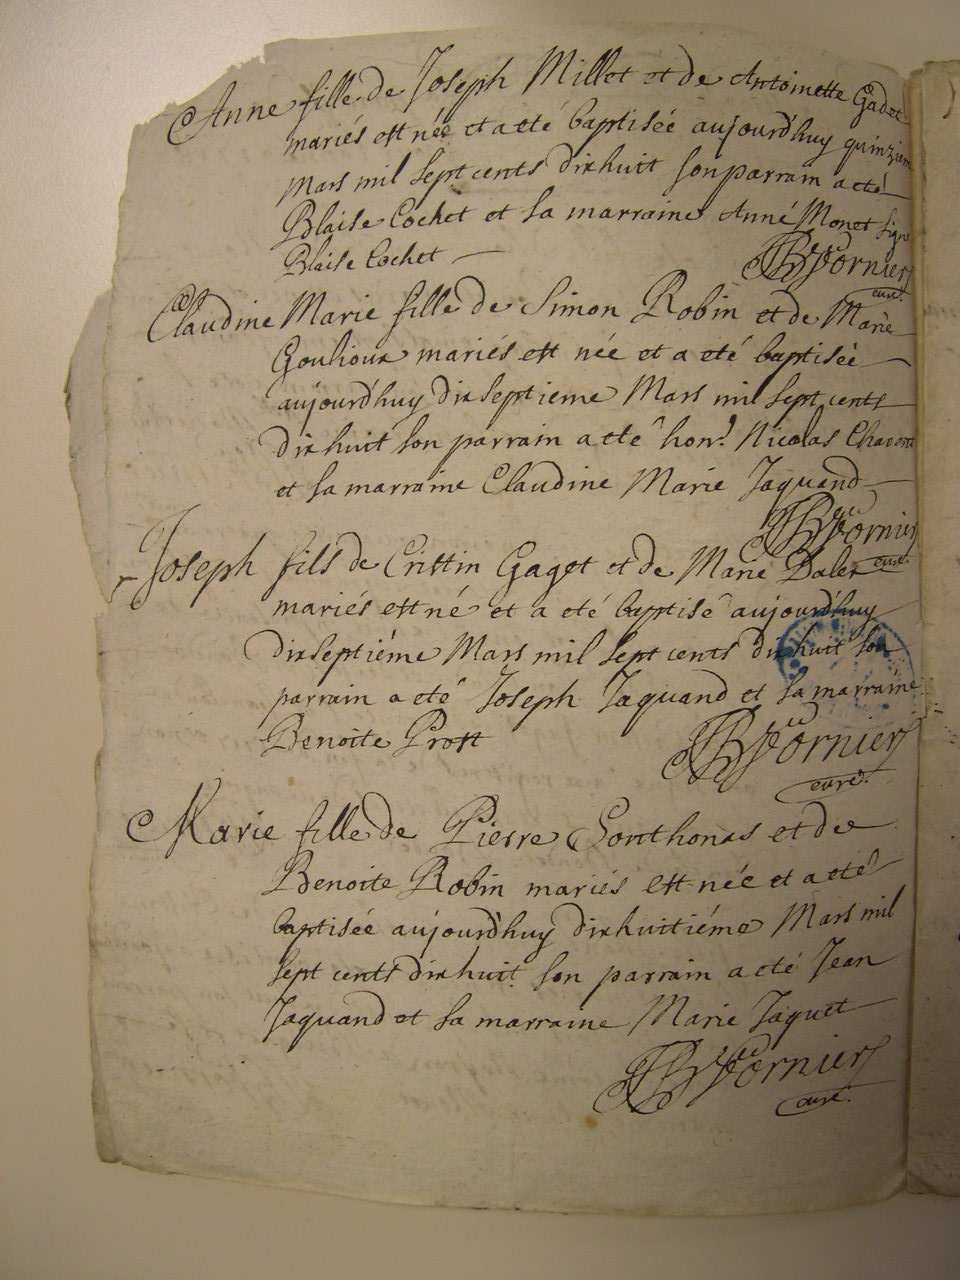 Anne fille de Joseph Millet et de Antoinette Gadet
mariés est née et a eté baptisée aujourd'huy quinzieme
Mars mil sept cents dixhuit son parrain a eté
Blaise Cochet et sa marraine Anne Monet signé
Blaise Cochet
Fornier
curé.
Claudine Marie fille de Simon Robin et de Marie
Goulioux mariés est née et a eté baptisée
aujourd'huy dixseptieme Mars mil sept cents
dixhuit son parrain a eté honr. Nicolas
et sa marraine Claudine Marie Jaquand
Fornier
curé.
Joseph fils de Cristin Gaget et de Marie
mariés est né et a eté baptisé aujourd'huy
dixseptiéme Mars mil sept cents dixhuit son
parrain a eté Joseph Jaquand et sa marraine
Benoite Prost
Fornier
curé.
Marie fille de Pierre Sonthonas et de
Benoite Robin mariés est née et a eté
baptisée aujourd'huy dixhuitiéme Mars mil
sept cents dixhuit son parrain a eté Jean
Jaquand et sa marraine Marie Jaquet
Fornier
curé.